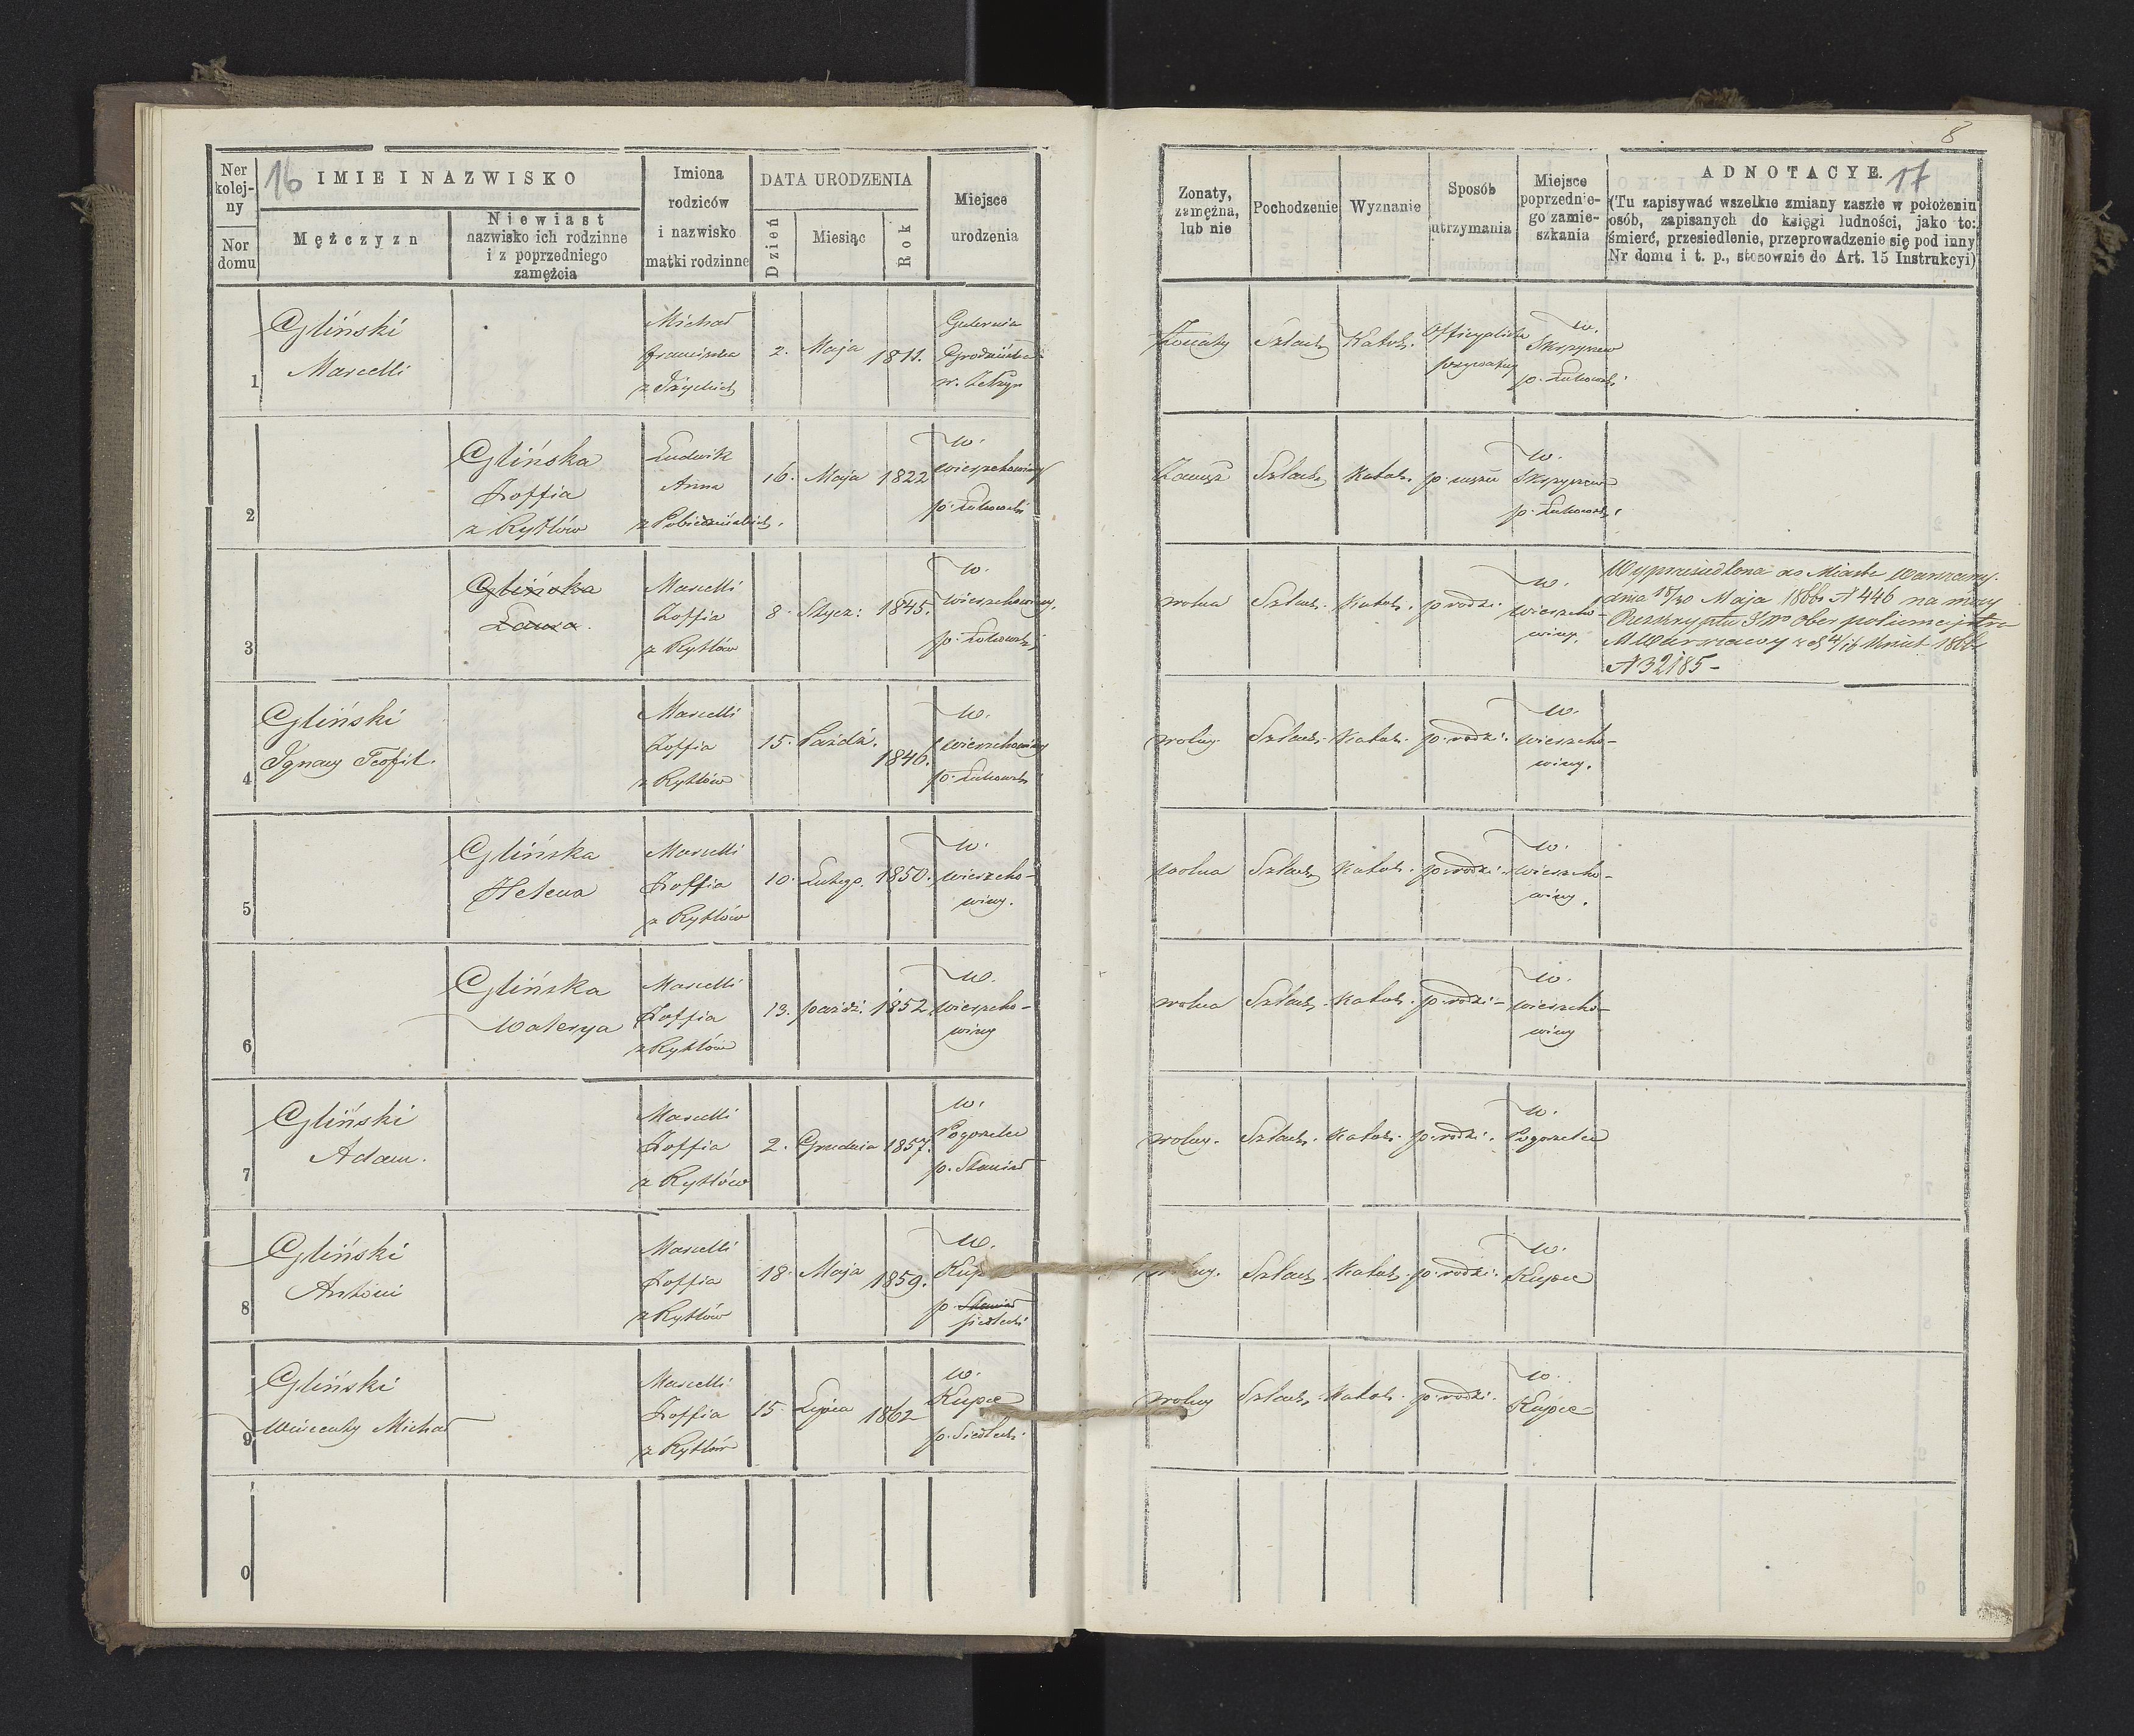 16
Ner kolej-ny
Nor domu
IMIE I NAZWISKO
Mężczyzn
Niewiast
nazwisko ich rodzinne
i z poprzedniego
zamęźcia
Imiona
rodziców
i nazwisko
matki rodzinne
DATA URODZENIA
Dzień
Miesiąc
Rok
Miejsce
urodzenia
1
Gliński
Marcelli
Michał
Franciszka
2. Maja 1811.
Gubernia
2
Glińska
Zoffia
z Rytlów
Ludwik
Anna
16. Maja 1822
w.
wierzchowiny
p. Łukowski
3
Glińska
Laura.
Marcelli
Zoffia
z Rytlów
8. Stycz: 1845.
w.
wierzchowiny.
p. Łukowski
4
Gliński
Ignacy Teofil.
Marcelli
Zoffia
z Rytlów
15. Paźdz. 1846.
w.
wierzchowiny
p. Łukowski
5
Glińska
Helena
Marcelli
Zoffia
z Rytlów
10. Lutego. 1850.
w.
wierzcho-
winy.
6
Glińska
Walerya
Marcelli
Zoffia
z Rytlów
13. paźdź. 1852
w.
wierzcho-
winy
7
Gliński
Adam.
Marcelli
Zoffia
z Rytlów
2. Grudnia 1857.
w.
Pogorzelec
8
Gliński
Antoni
Marcelli
Zoffia
z Rytlów
18. Maja 1859.
w.
p.
siedlecki
9
Gliński
Wincenty Michał
Marcelli
Zoffia
z Rytlów
15. Lipca 1862
w.
Kupce
p. Siedlecki
0
8
17
Zonaty,
zamężna,
lub nie
Pochodzenie
Wyznanie
Sposób
utrzymania
Miejsce
poprzednie-
go zamie-
szkania
ADNOTACYE.
(Tu zapisywać wszelkie zmiany zaszłe w położeniu
osób, zapisanych do księgi ludności, jako to:
śmierć, przesiedlenie, przeprowadzenie się pod inny
Nr domu i t. p., stosownie do Art. 15 Instrukcyi)
Żonaty Szlach. Katol. Officyalista
prywatny
w.
Skrzyszew
p. Łukowski
Zamęż. Szlach. Katol. p. mężu
w.
Skrzyszew
p. Łukowski
wolna Szlach. Katol. p rodzi.
w.
wierzcho-
winy.
Wyprzesiedlona do Miasta Warszawy.
dnia 18/30 Maja 1866 N 446 na mocy
Reskryptu Ober policmejstra
M Warszawy
N 32185 -
wolny Szlach. Katol. p. rodzi.
w.
wierzcho-
winy.
wolna Szlach. Katol. p. rodzi.
w.
wierzcho-
winy.
wolna Szlach. Katol. p. rodzi-
w.
wierzcho-
winy
wolny. Szlach. Katol. p. rodzi.
w.
Pogorzelec
Szlach. Katol. p. rodzi.
w.
Kupce
wolny Szlach. Katol. p. rodzi.
w.
Kupce